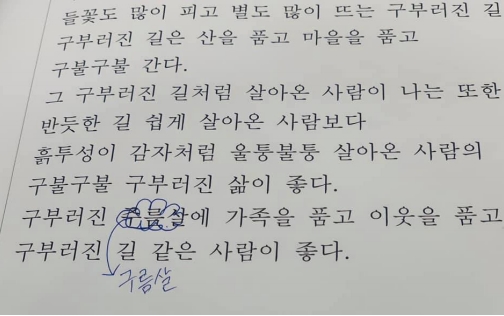 들꽃도 많이 피고 별도 많이 뜨는 구부러진 길
구부러진 길은 산을 품고 마을을 품고
구불구불 간다.
그 구부러진 길처럼 살아온 사람이 나는 또한
반듯한 길 쉽게 살아온 사람보다
흙투성이 감자처럼 울퉁불퉁 살아온 사람의
구불구불 구부러진 삶이 좋다.
구부러진 가족을 품고 이웃을 품고
구부러진 길 같은 사람이 좋다.
구름살